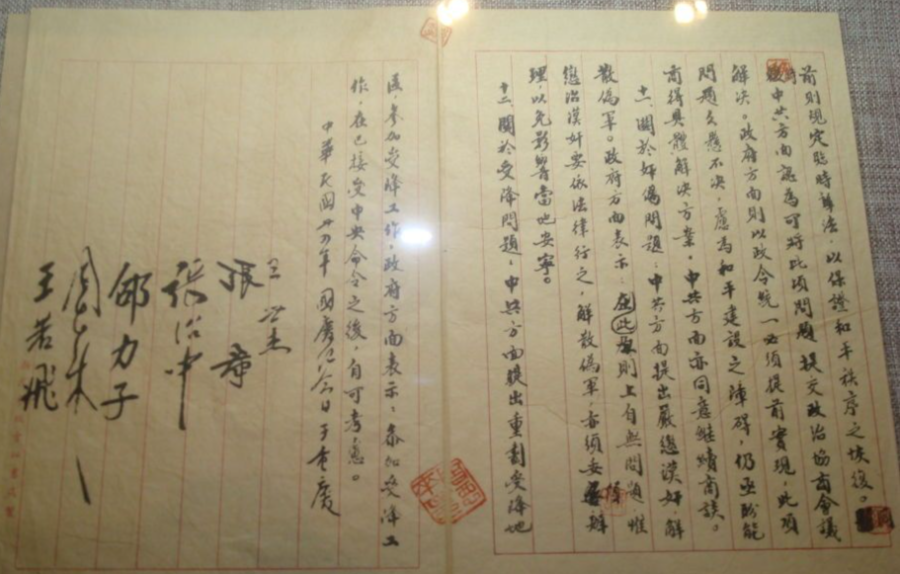 前則規定臨時辦法,以保證和平秩序之恢復。
中共方面認為可將此項問題提交政治協商會議
解決。政府方面則以政令統一必須提前實現,此項
問題久懸不決,慮為和平建設之障礙,仍亟盼能
商得具體解決方案。中共方面亦同意繼續商談。
十一、關於奸偽問題,中共方面提出嚴懲漢奸,解
散偽軍。政府方面表示:在此原則上自無問題,惟
懲治漢奸要依法律行之,解散偽軍,亦須妥慎辦
理,以免影響當地安寧。
十二、關於受降問題,中共方面提出重劃受降地
區,參加受降工作,政府方面表示:參加受降工
作,在已接受中央命令之後,自可考慮。
中華民國卅四年國慶紀念日于重慶
王世杰
張羣
張治中
邵力子
周恩來
王若飛